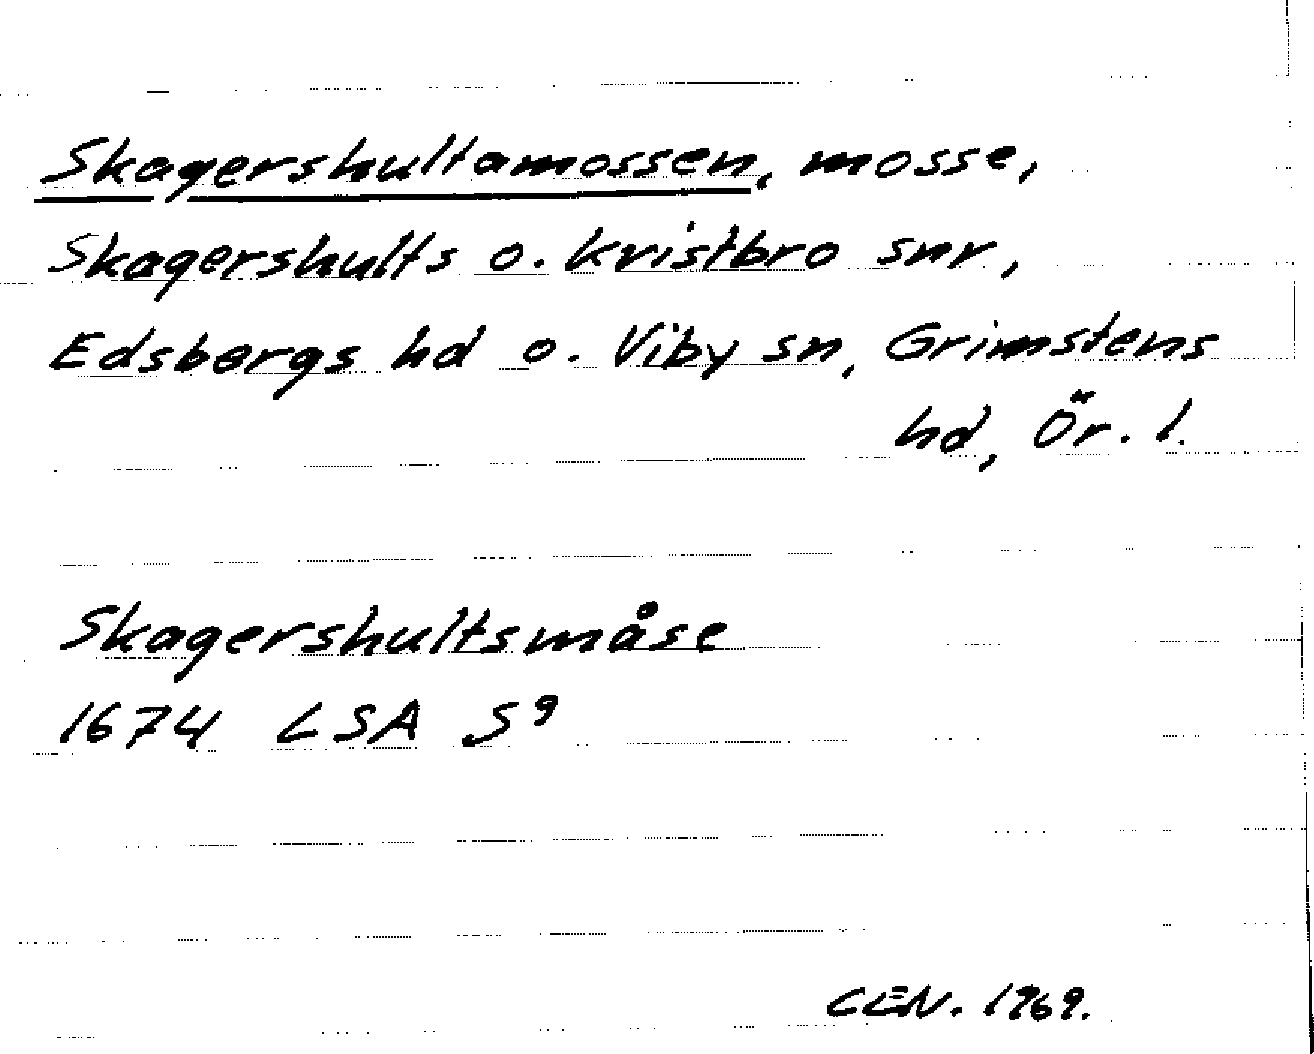 Skagershultamossen, mosse,
Skagershults o. Kvistbro snr,
Edsbergs hd o. Viby sn, Grimstens
hd, Ör. l.
Skagershultsmåse
1674 LSA S9
CEN. 1969.